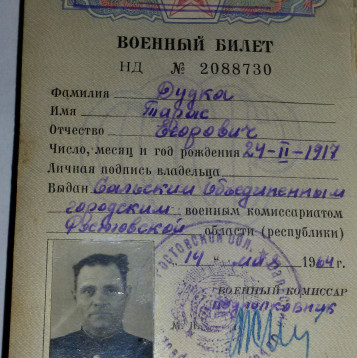 ВОЕННЫЙ БИЛЕТ
НД № 2088730
Фамилия Дудка
Имя Тарас
Отчество Егорович
Число, месяц и год рождения 24-II-1917
Личная подпись владельца
Выдан Сальским Объединенным
городским военным комиссариатом
Ростовской области (республики)
„14" мая 1964г.
ВОЕННЫЙ КОМИССАР
подполковник
М.